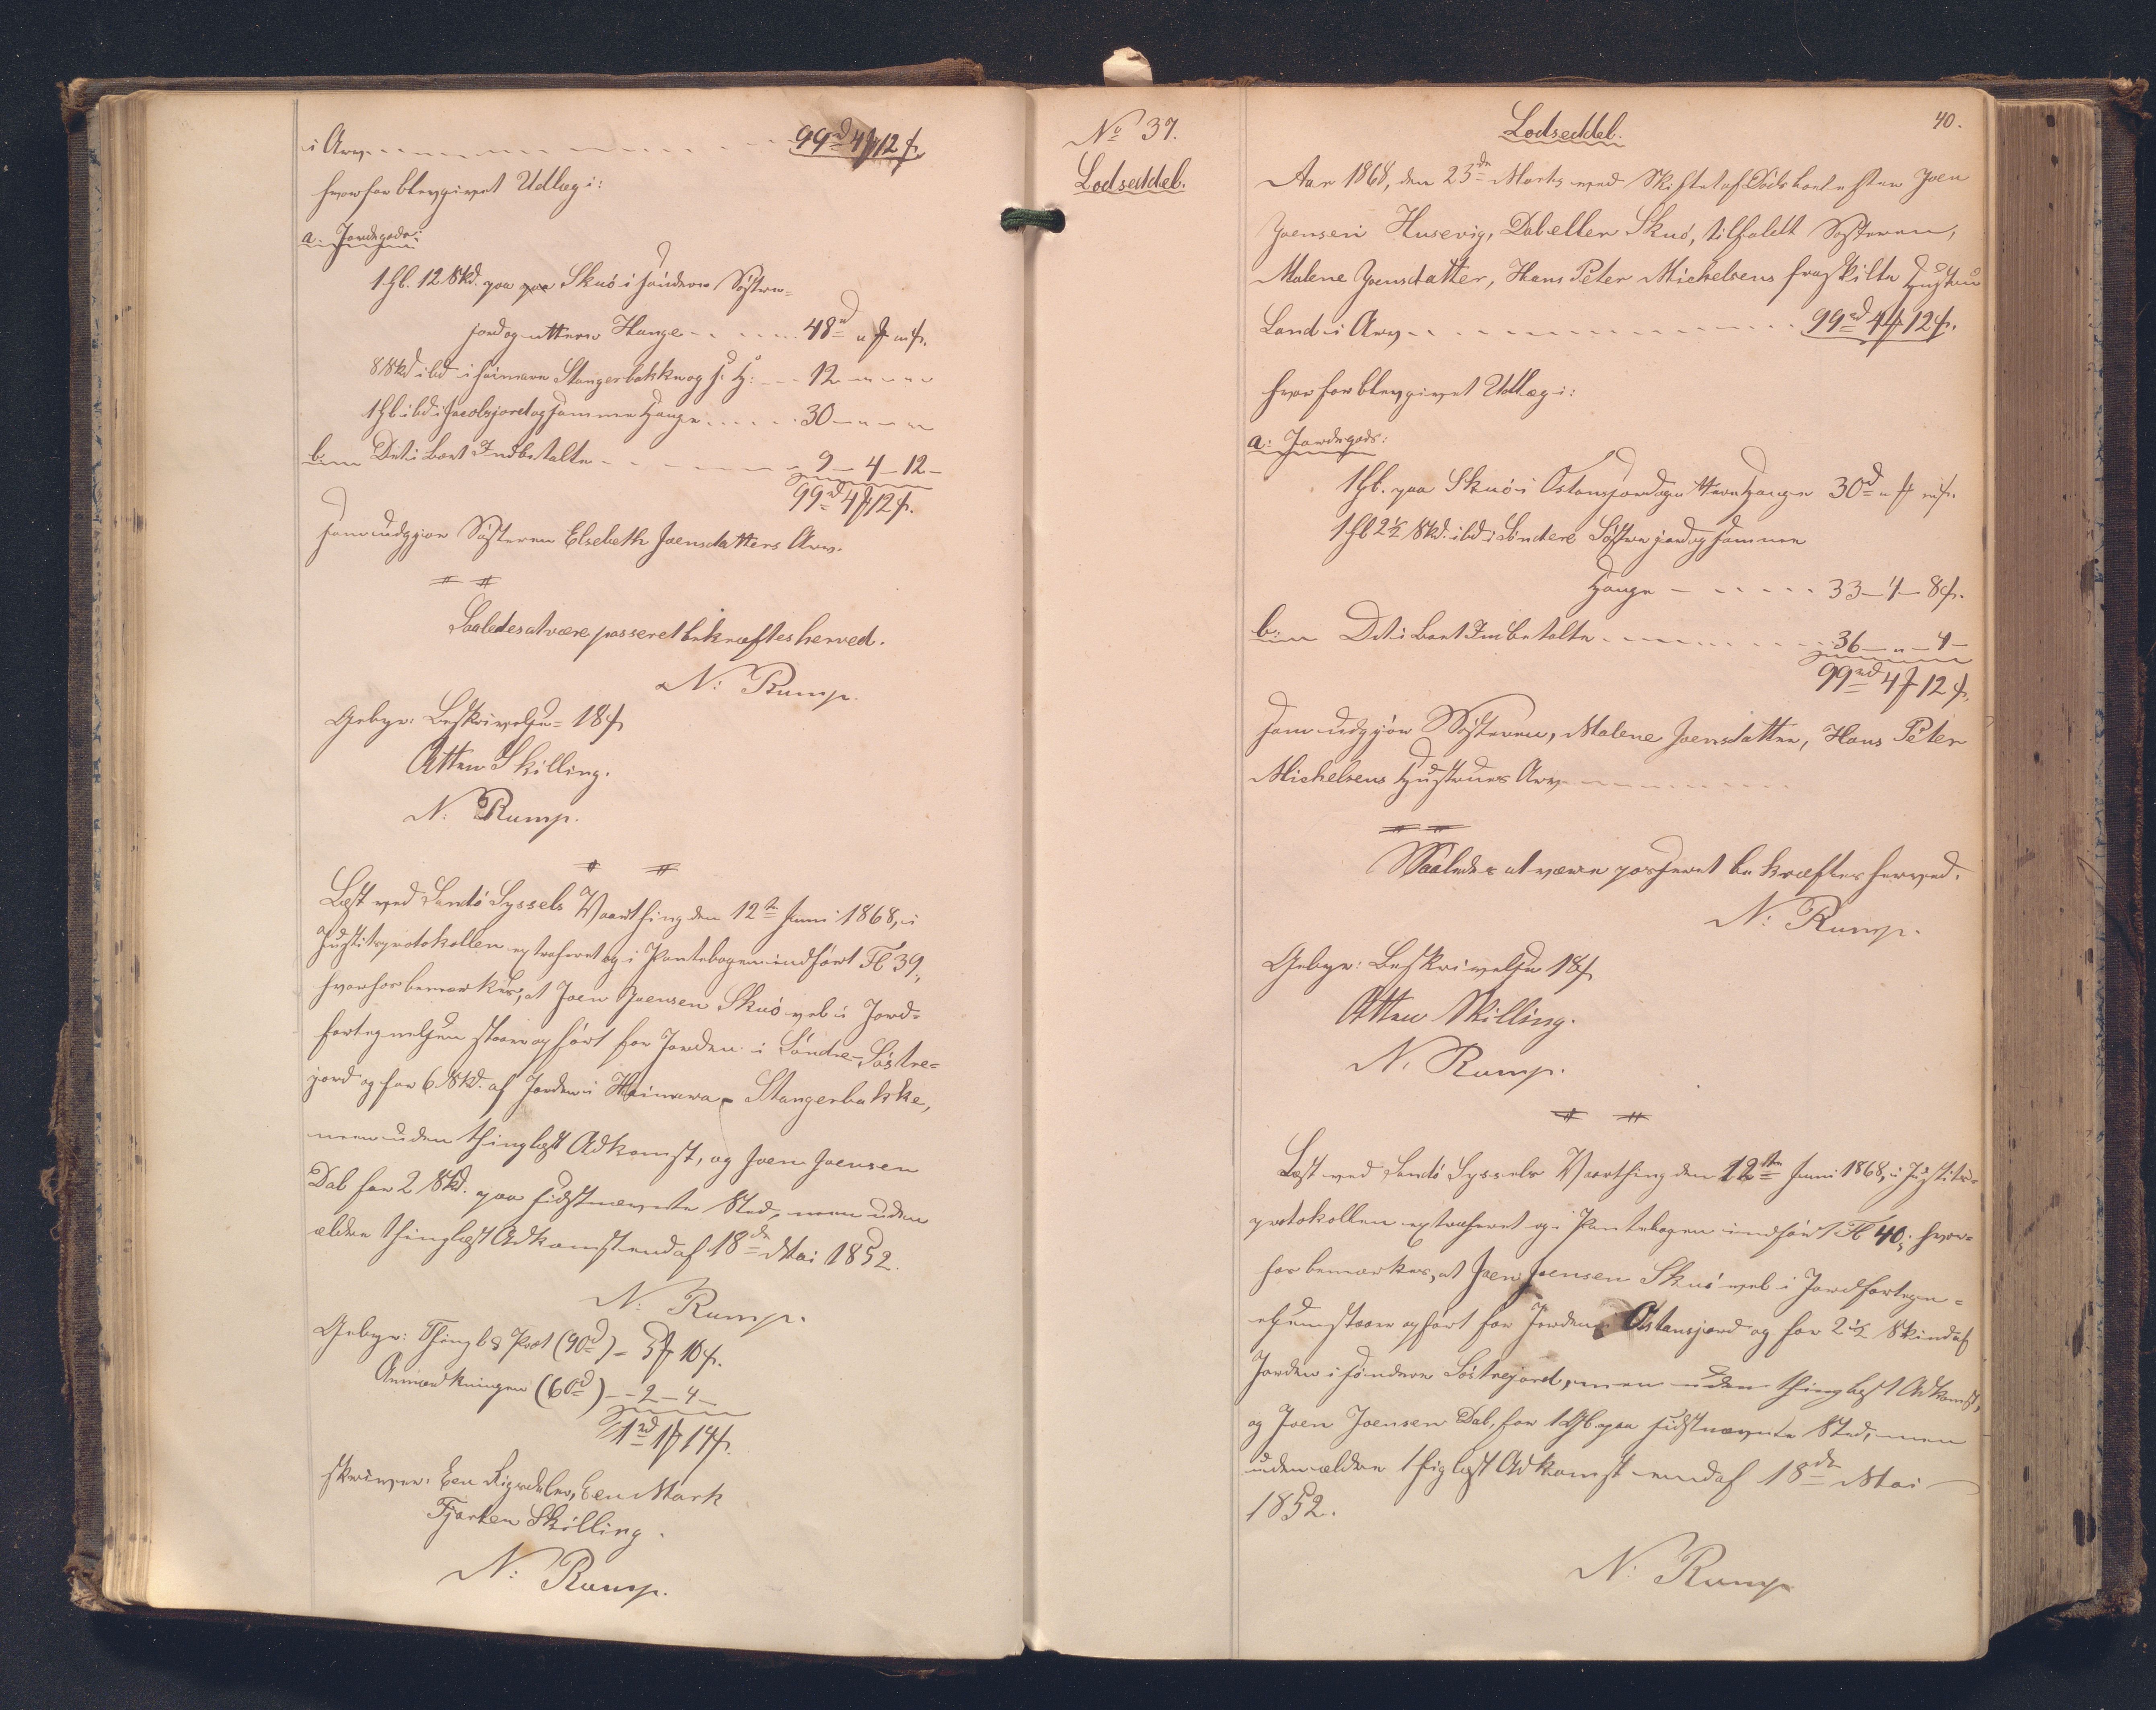 i Arv 99rd 4ƒ 12ſ.
hvorfor blev givet Udlæg i:
a: Jordegods:
1 Gl. 12 Skd. paa paa Skuö i söndere Söstre-
jord og attere Hauge 48rd " ƒ " ſ.
8 Skd ibd i heimara Stangerbakke og s. H: 12 " "
1 Gl. ibd i Jacobsjord og samme Hauge 30 " "
b: Det i Boet Indbetalte 9 - 4 - 12 -
99rd 4ƒ 12ſ.
som udgjör Søsteren Elsebeth Joensdatters Arv.
Saaledes at være passeret bekræftes herved.
N: Rump.
Gebyr: Beskrivelse = 18ſ
Atten Skilling.
N. Rump.
Læst ved Sandö Syssels Vaarthing den 12te Juni 1868, i
Justitsprotokollen extraheret og i Pantebogen indført Fl 39,
hvorhos bemærkes, at Joen Joensen Skuö vel i Jord-
fortegnelsen staaer opført for Jorden i Söndre-Söstre-
jord og for 6 Skd. af Jorden i Heimara-Stangerbakke,
men uden thinglæst Adkomst, og Joen Joensen
Dal for 2 Skd. paa sidstnævnte Sted, men uden
ældre thinglæst Adkomst end af 18de Mai 1852.
N: Rump.
Gebyr: Thingl & Prot (90rd) = 5ƒ 10ſ.
Anmærkningen (60rd) - - 2 - 4 -
1rd 1ƒ 14ſ.
skriver: Een Rigsdaler, Een Mark
Fjorten Skilling.
N: Rump.
No 37.
Lodseddel.
40.
Lodseddel.
Aar 1868, den 23de Marts ved Skiftet af Dödsboet efter Joen
Joensen Husevig, Dal eller Skuö, tilfaldt Søsteren,
Malene Joensdatter, Hans Peter Michelsens fraskilte Hustru
Land i Arv 99rd 4ƒ 12ſ.
hvorfor blev givet Udlæg i:
a: Jordegods:
1 Gl. paa Skuö i Ostansjord og attere Hauge 30rd " ƒ " ſ.
1 Gl 2½ Skd. ibd i Söndere Söstrejord og samme
Hauge 33 - 4 - 8ſ.
b: Det i Boet Indbetalte 36 - " - 4 -
99rd 4ƒ 12ſ.
som udgjör Søsteren, Malene Joensdatter, Hans Peter
Michelsens Hustrues Arv
Saaledes at være passeret bekræftes herved.
N: Rump.
Gebyr: Beskrivelse 18ſ
Atten Skilling.
N. Rump.
Læst ved Sandö Syssels Vaarthing den 12ten Juni 1868, i Justits-
protokollen extraheret og i Pantebogen indført Fl 40; hvor-
hos bemærkes, at Joen Joensen Skuö vel i Jordfortegn-
elsen staaer opført for Jorden i Ostansjord og for 2½ Skind af
Jorden i söndere Söstrejord, men uden thinglæst Adkomst,
og Joen Joensen Dal, for 1 Gl. paa sidstnævnte Sted, men
uden ældre thiglæst Adkomst end af 18de Mai
1852.
N: Rump